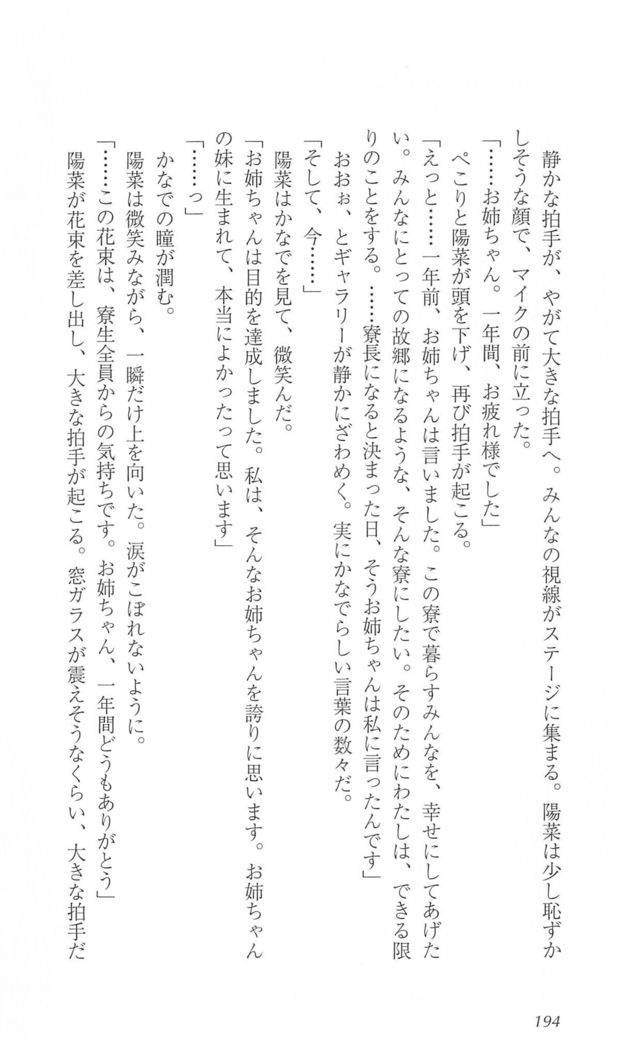 静かな拍手が、やがて大きな拍手へ。みんなの視線がステージに集まる。陽菜は少し恥ずか
しそうな顔で、マイクの前に立った。
「……お姉ちゃん。一年間、お疲れ様でした」
ぺこりと陽菜が頭を下げ、再び拍手が起こる。
「えっと……一年前、お姉ちゃんは言いました。この寮で暮らすみんなを、幸せにしてあげた
い。みんなにとっての故郷になるような、そんな寮にしたい。そのためにわたしは、できる限
りのことをする。……寮長になると決まった日、そうお姉ちゃんは私に言ったんです」
おおぉ、とギャラリーが静かにざわめく。実にかなでらしい言葉の数々だ。
「そして、今……」
陽菜はかなでを見て、微笑んだ。
「お姉ちゃんは目的を達成しました。私は、そんなお姉ちゃんを誇りに思います。お姉ちゃん
の妹に生まれて、本当によかったって思います」
「……っ」
かなでの瞳が潤む。
陽菜は微笑みながら、一瞬だけ上を向いた。涙がこぼれないように。
「……この花束は、寮生全員からの気持ちです。お姉ちゃん、一年間どうもありがとう」
陽菜が花束を差し出し、大きな拍手が起こる。窓ガラスが震えそうなくらい、大きな拍手だ
194